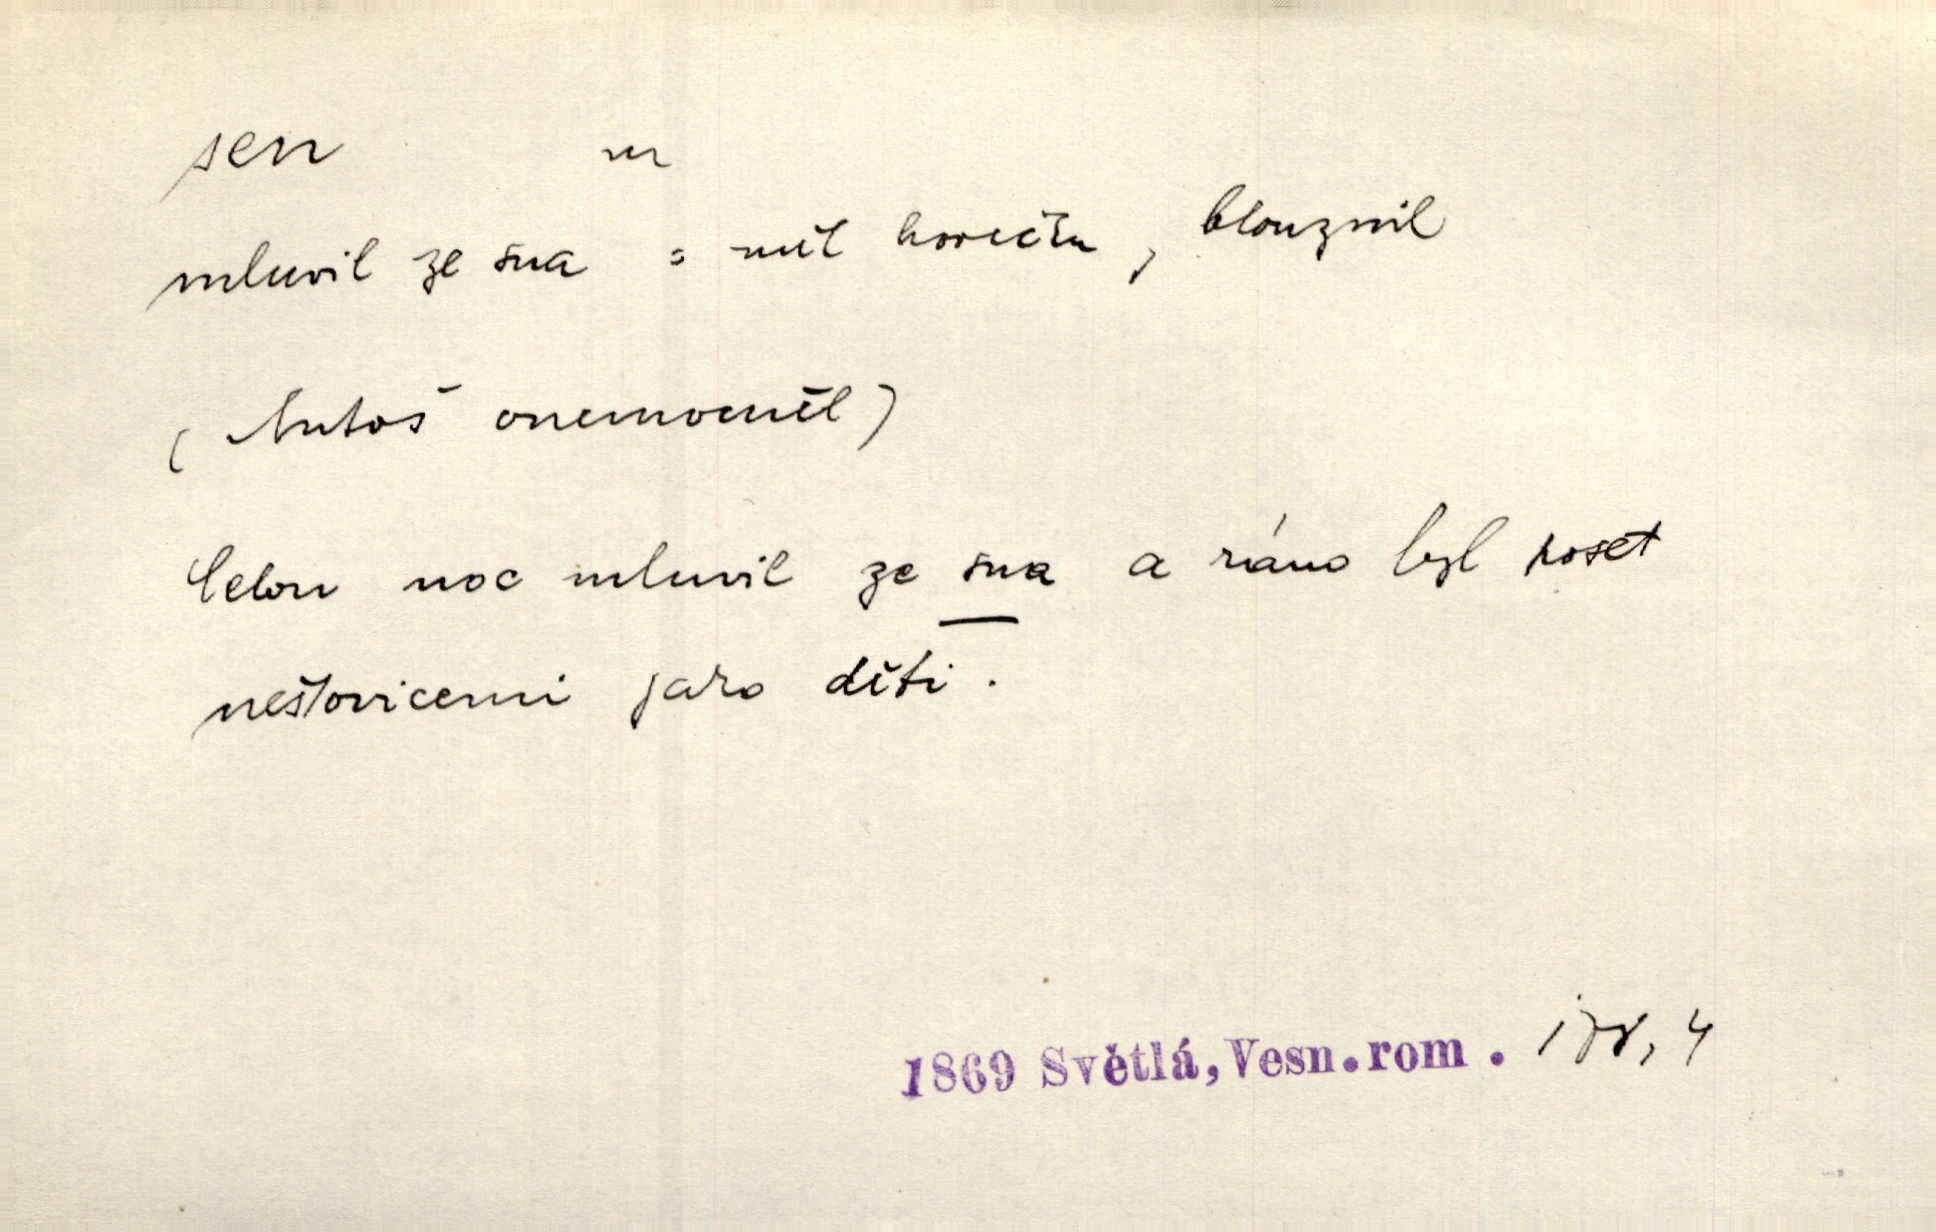 sen m
mluvil ze sna = měl horečku, blouznil
(Antoš onemocněl)
Celou noc mluvil ze sna a ráno byl poset
neštovicemi jako děti.
1869 Světlá, Vesn. rom. 178, 4